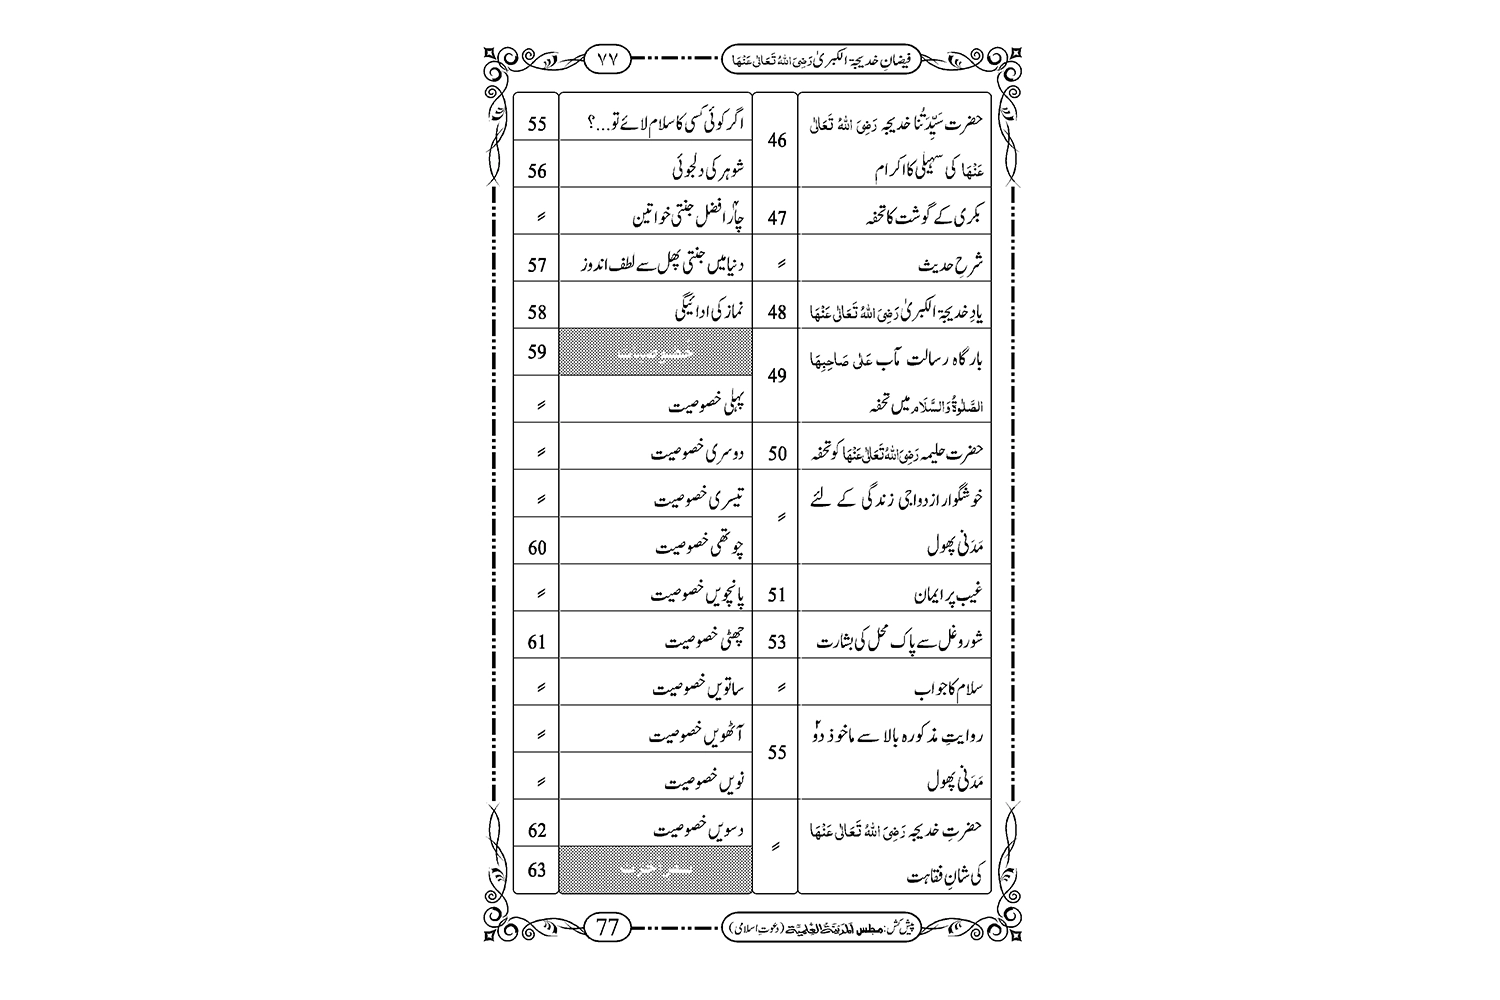 فیضانِ خدیجۃ الکبریٰ رَضِیَ اللہُ تَعَالٰی عَنْهَا
۷۷
حضرت سَیِّدَتُنا خدیجہ رَضِیَ اللہُ تَعَالٰی
عَنْهَا کی سہیلی کا اکرام
46
بکری کے گوشت کا تحفہ
47
شرحِ حدیث
〃
یادِ خدیجۃ الکبریٰ رَضِیَ اللہُ تَعَالٰی عَنْهَا
48
بارگاہ رسالت مآب عَلٰی صَاحِبِهَا
الصَّلٰوةُ وَالسَّلَام میں تحفہ
49
حضرت حلیمہ رَضِیَ اللہُ تَعَالٰی عَنْهَا کو تحفہ
50
خوشگوار ازدواجی زندگی کے لئے
مَدَنی پھول
〃
غیب پر ایمان
51
شور و غل سے پاک محل کی بشارت
53
سلام کا جواب
〃
روایتِ مذکورہ بالا سے ماخوذ دو۲
مَدَنی پھول
55
حضرتِ خدیجہ رَضِیَ اللہُ تَعَالٰی عَنْهَا
کی شانِ فقاہت
〃
اگر کوئی کسی کا سلام لائے تو...؟
55
شوہر کی دلجوئی
56
چار۴ افضل جنتی خواتین
〃
دنیا میں جنتی پھل سے لطف اندوز
57
نماز کی ادائیگی
58
خصوصیت
59
پہلی خصوصیت
〃
دوسری خصوصیت
〃
تیسری خصوصیت
〃
چوتھی خصوصیت
60
پانچویں خصوصیت
〃
چھٹی خصوصیت
61
ساتویں خصوصیت
〃
آٹھویں خصوصیت
〃
نویں خصوصیت
〃
دسویں خصوصیت
62
سفرِ آخرت
63
پیش کش: مجلس المدینۃ العلمیۃ (دعوتِ اسلامی)
77